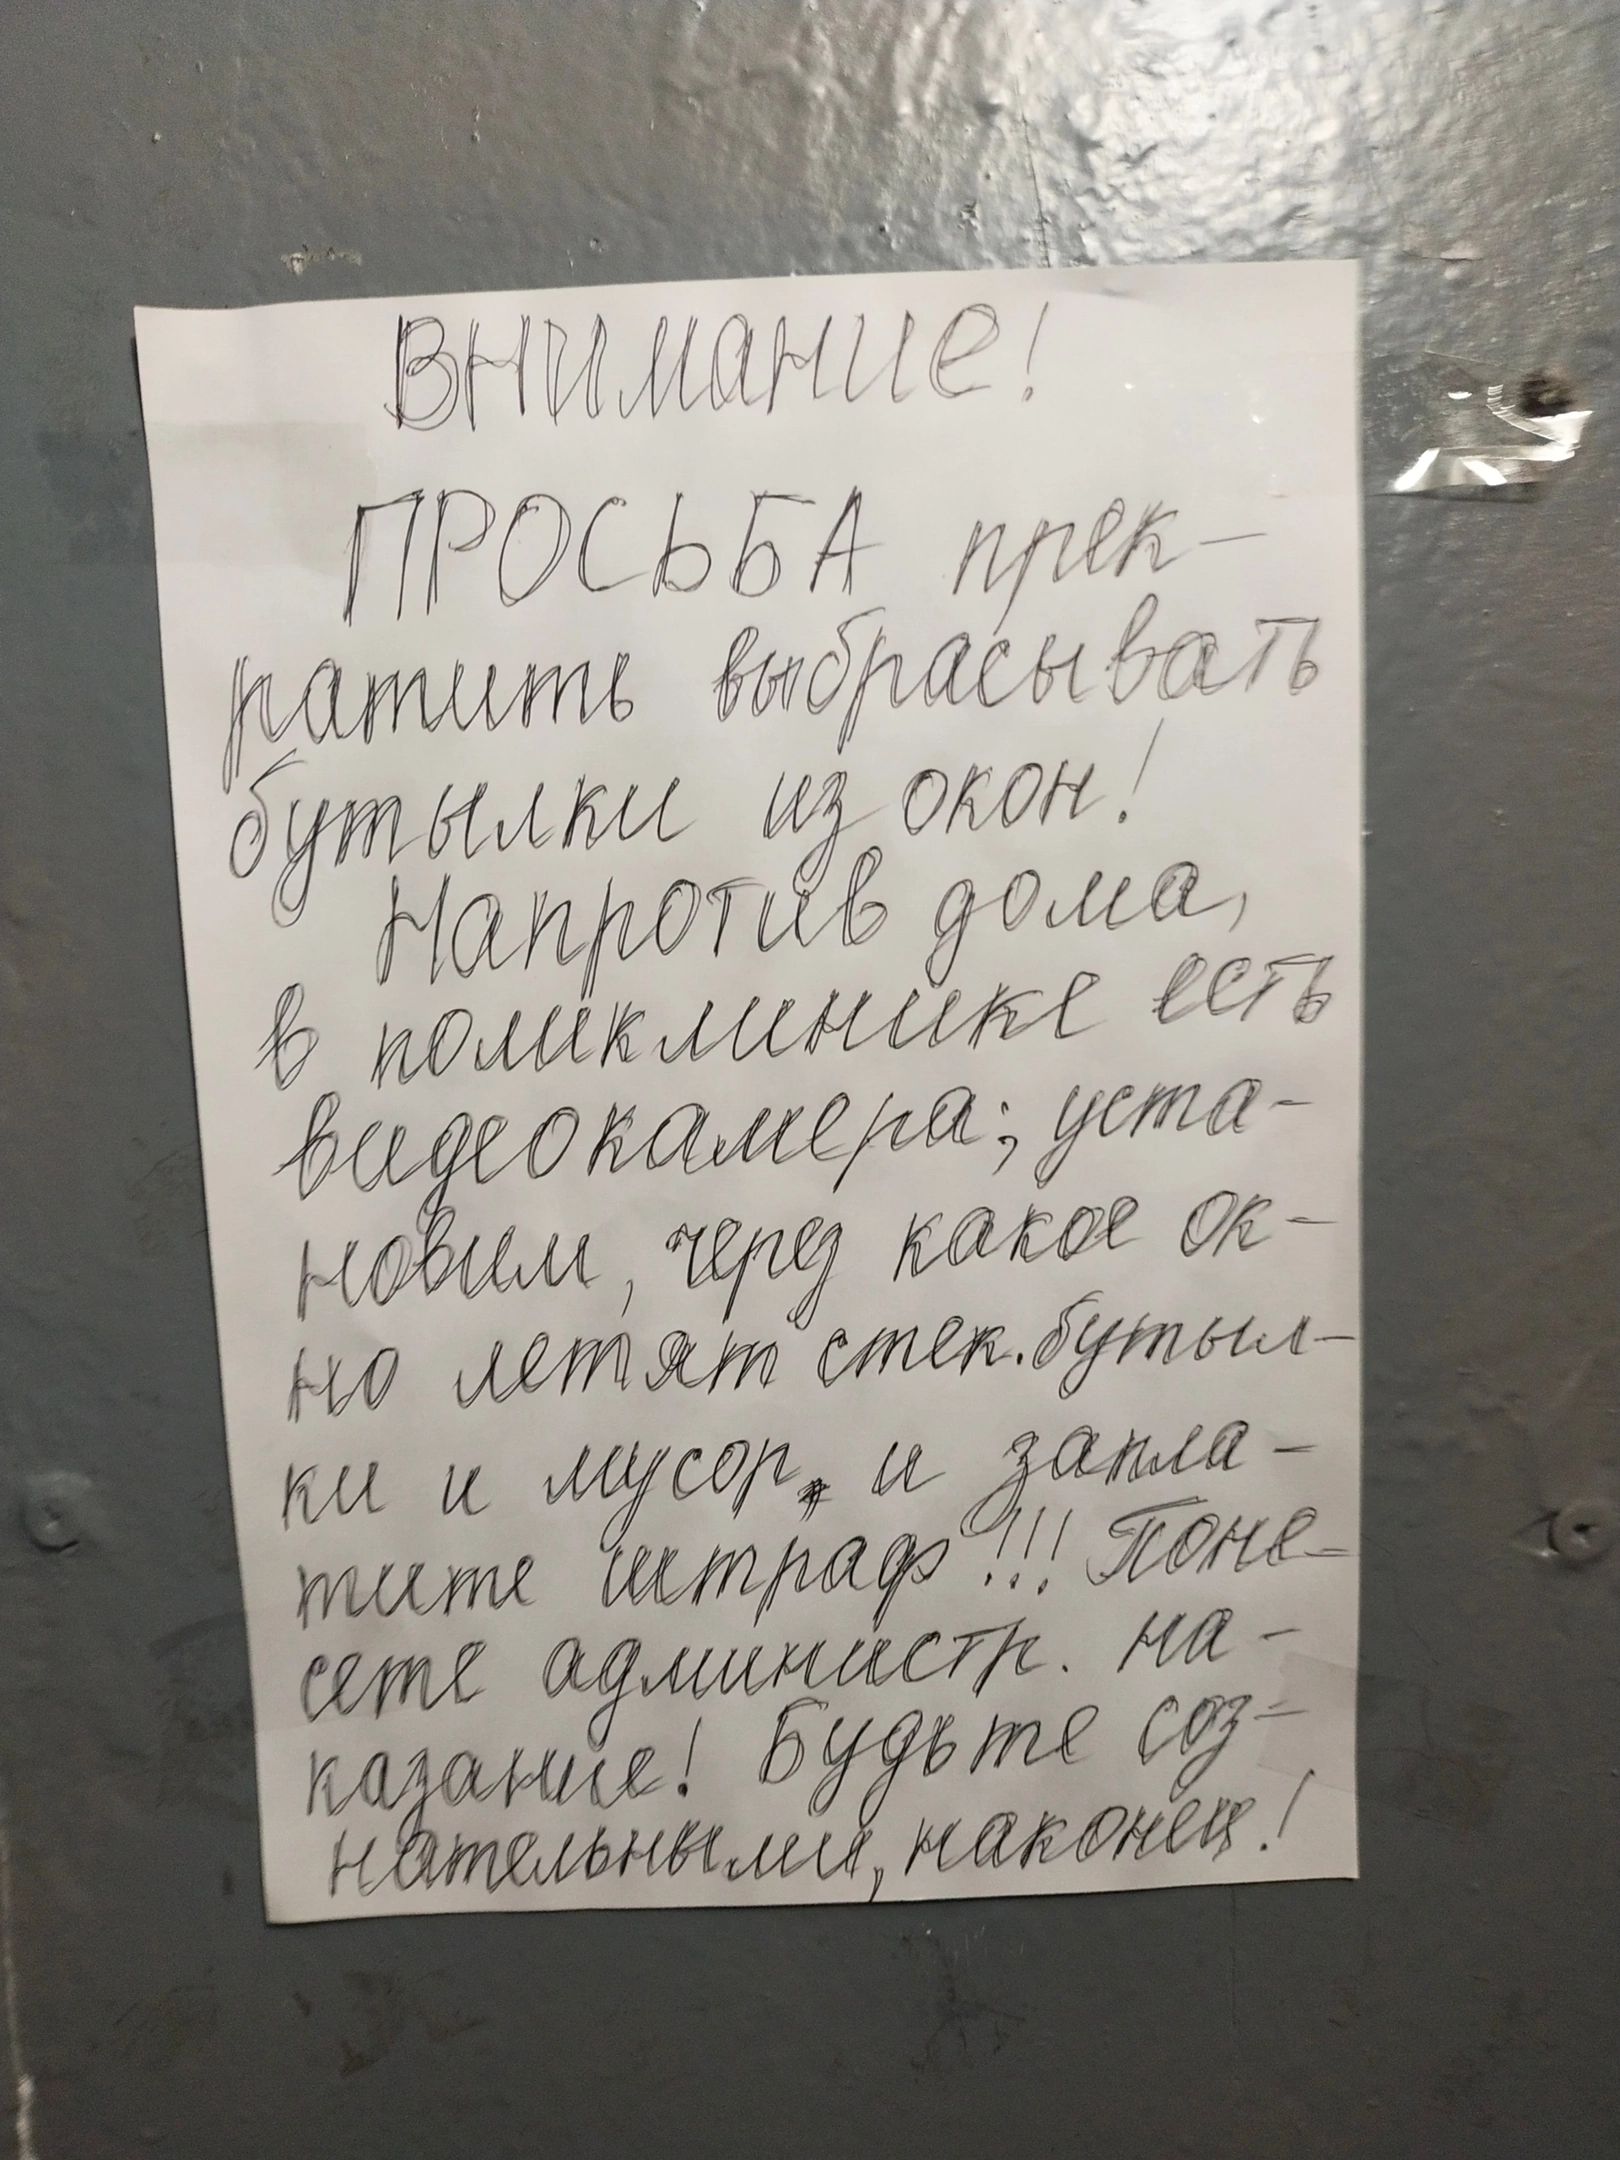 Внимание!
ПРОСЬБА прек-
ратить выбрасывать
бутылки из окон!
Напротив дома,
в поликлинике есть
видеокамера; уста-
новим, через какое ок-
но летят стек. бутыл-
ки и мусор, и запла-
тите штраф!!! Поне-
сете администр. на-
казание! Будьте соз-
нательными, наконец!